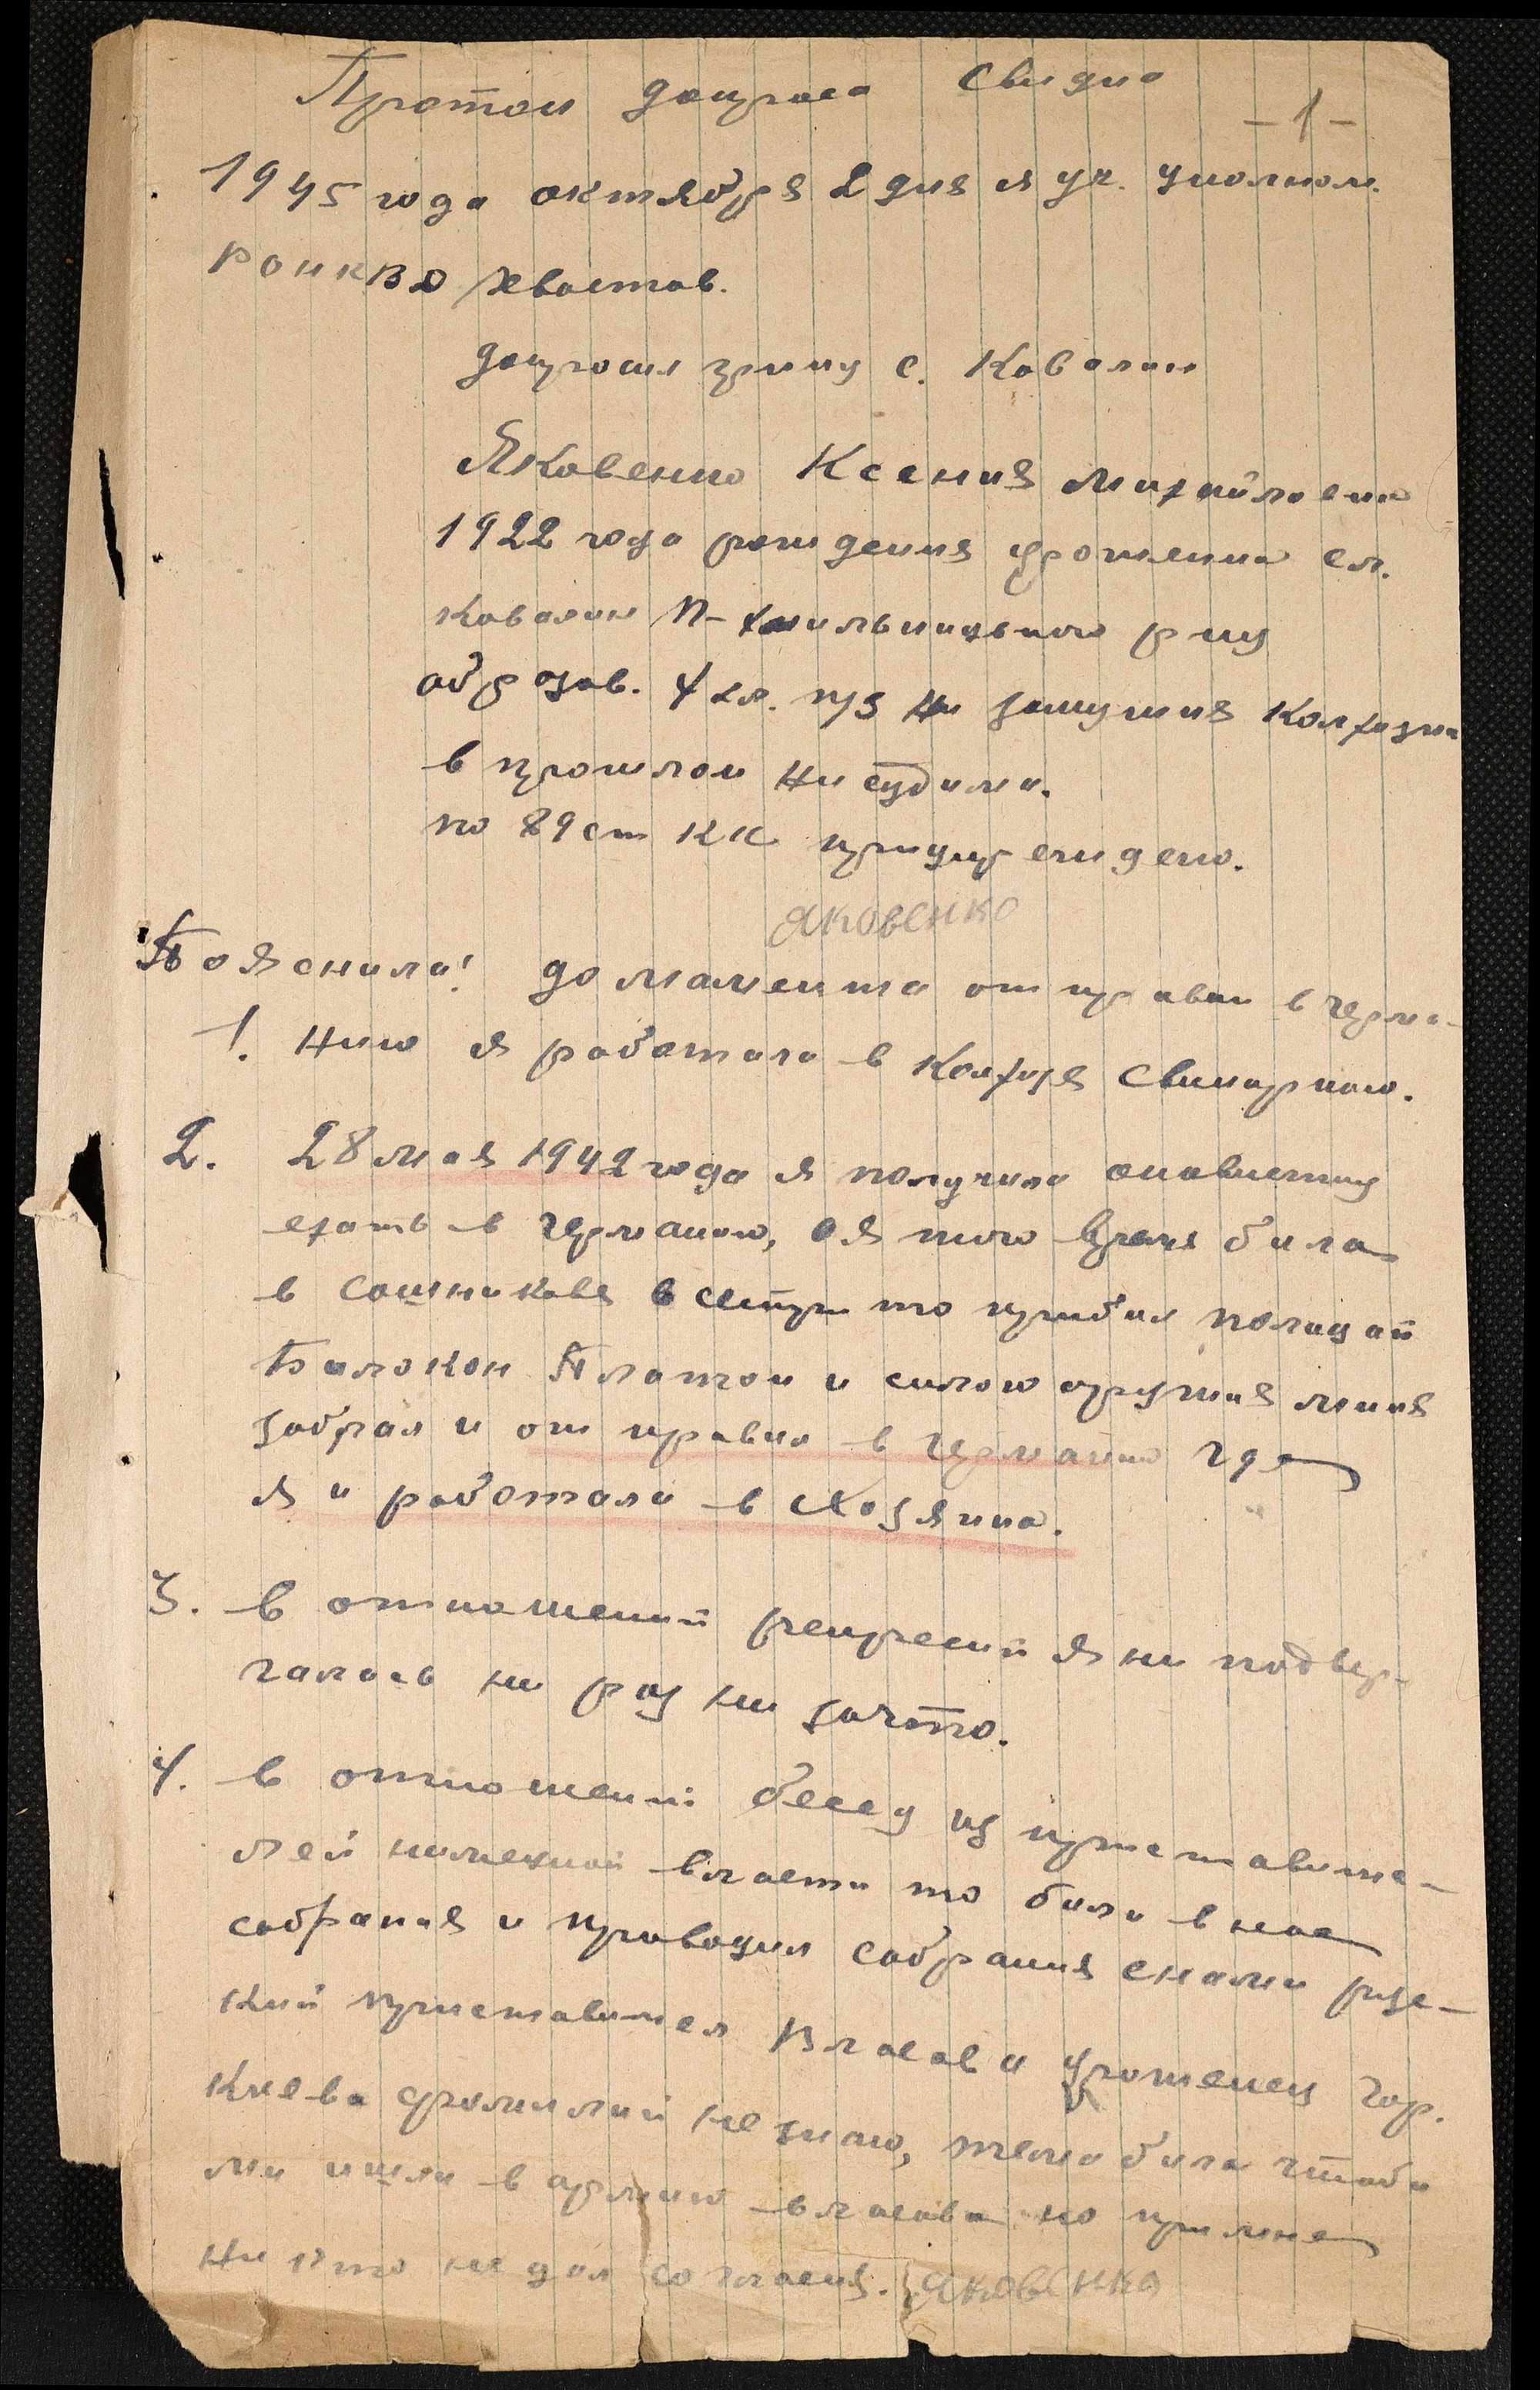 Протокол допроса свидка
- 1 -
1945 года октября 2 дня я уч. уполном.
РОНКВД Хвостов.
допросил грнку с. Ковалин
Яковенко Ксения Михайловна
1922 года рождения уроженка сл.
Ковалин П-Хмильницького р-ну
образов. 4 кл. б/п замужняя колхозница
в прошлом ни судима.
по 89 ст КК придупреждено.
Яковенко
Пояснила: до момента отправки в Герма-
1. нию я работала в колхозе свинаркою.
2. 28 мая 1942 года я получила оповистку
ехать в Германию, а я того время была
в Сошникове в сестри то прибыл полицай
Билокон Платон и силою оружия миня
забрал и отправил в Германию где
я и работала в Хозяина.
3. в отношений репресий я ни подвер-
галась ни раз ни зачто.
4. в отношений бесед из приставите-
лей нимецкой власти то были в нас
собрания и проводил собрания снами руде-
кий приставител Власова уроженец гор.
Киева фромилий не знаю, тема была чтоби
ми ишли в армию власова но при мне
ни кто не дал согласия. Яковенко